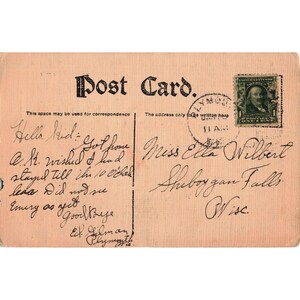 Post Card.
This space may be used for correspondence
The address only to be written here
PLYMOUTH
11 AM
Hello
Got home
O.K. wished I had
stayed till this 10 o'clock
Did not see
Emery as yet
Good Bye
Ed
Plymouth
Miss Ella Wilbert
Sheboygan Falls
Wisc.